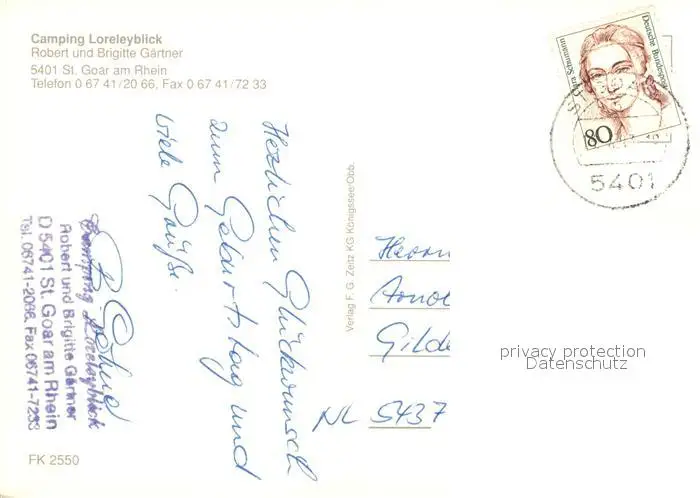 Camping Loreleyblick
Robert und Brigitte Gärtner
5401 St. Goar am Rhein
Telefon 0 67 41/20 66, Fax 0 67 41/72 33
Herzlichen Glückwunsch
zum Geburtstag und
viele Grüße.
Camping Loreleyblick
Robert und Brigitte Gärtner
D 5401 St. Goar am Rhein
Tel. 06741-2066, Fax 06741-7233
FK 2550
Verlag F. G. Zeitz KG Königssee/Obb.
Deutsche Bundespost
Clara Schumann
80
5401
Herrn
Arnol
Gilde
NL 5437
privacy protection
Datenschutz